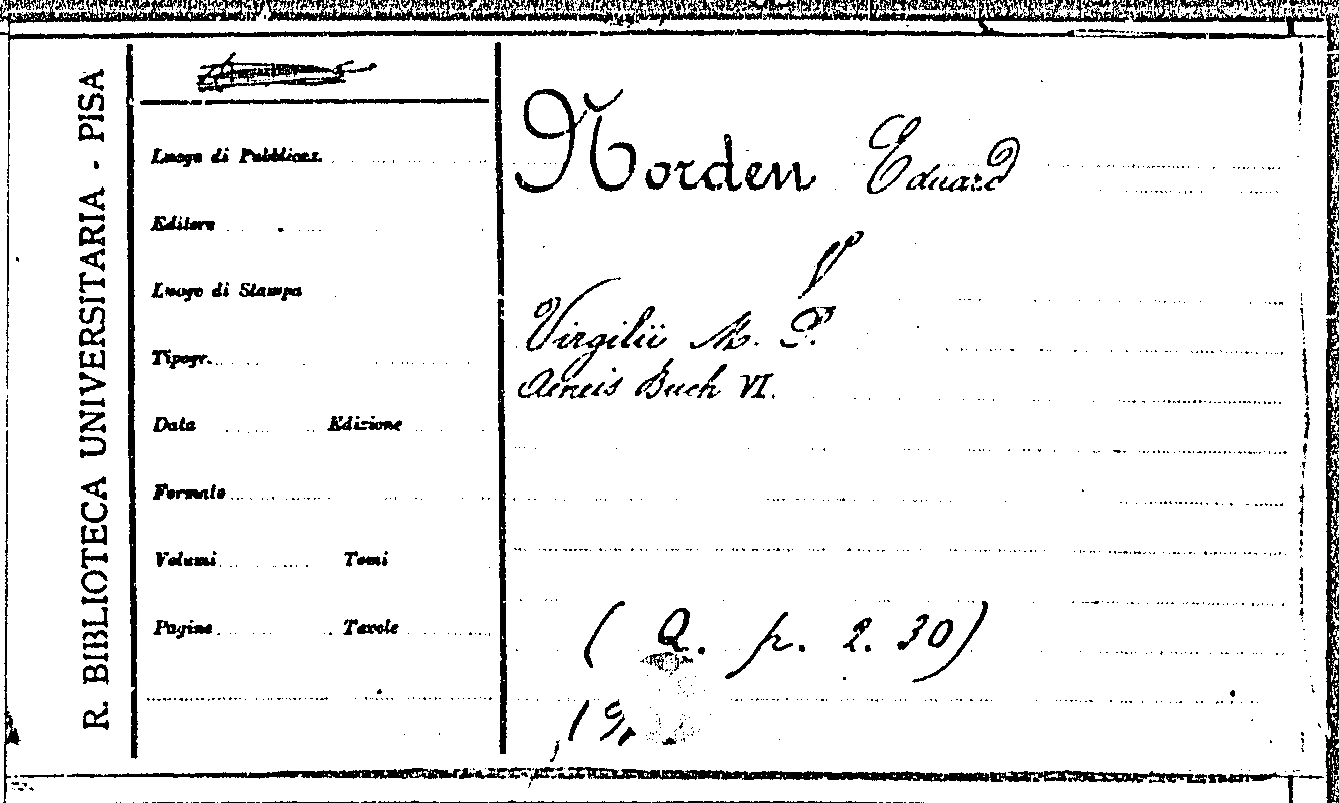 R. BIBLIOTECA UNIVERSITARIA - PISA
Luogo di Pubblicaz.
Editore
Luogo di Stampa
Tipogr.
Data Edizione
Formato
Volumi Tomi
Pagine Tavole
Norden Eduard
V
Virgilii M. P.
Aeneis Buch VI.
( Q. p. 2. 30)